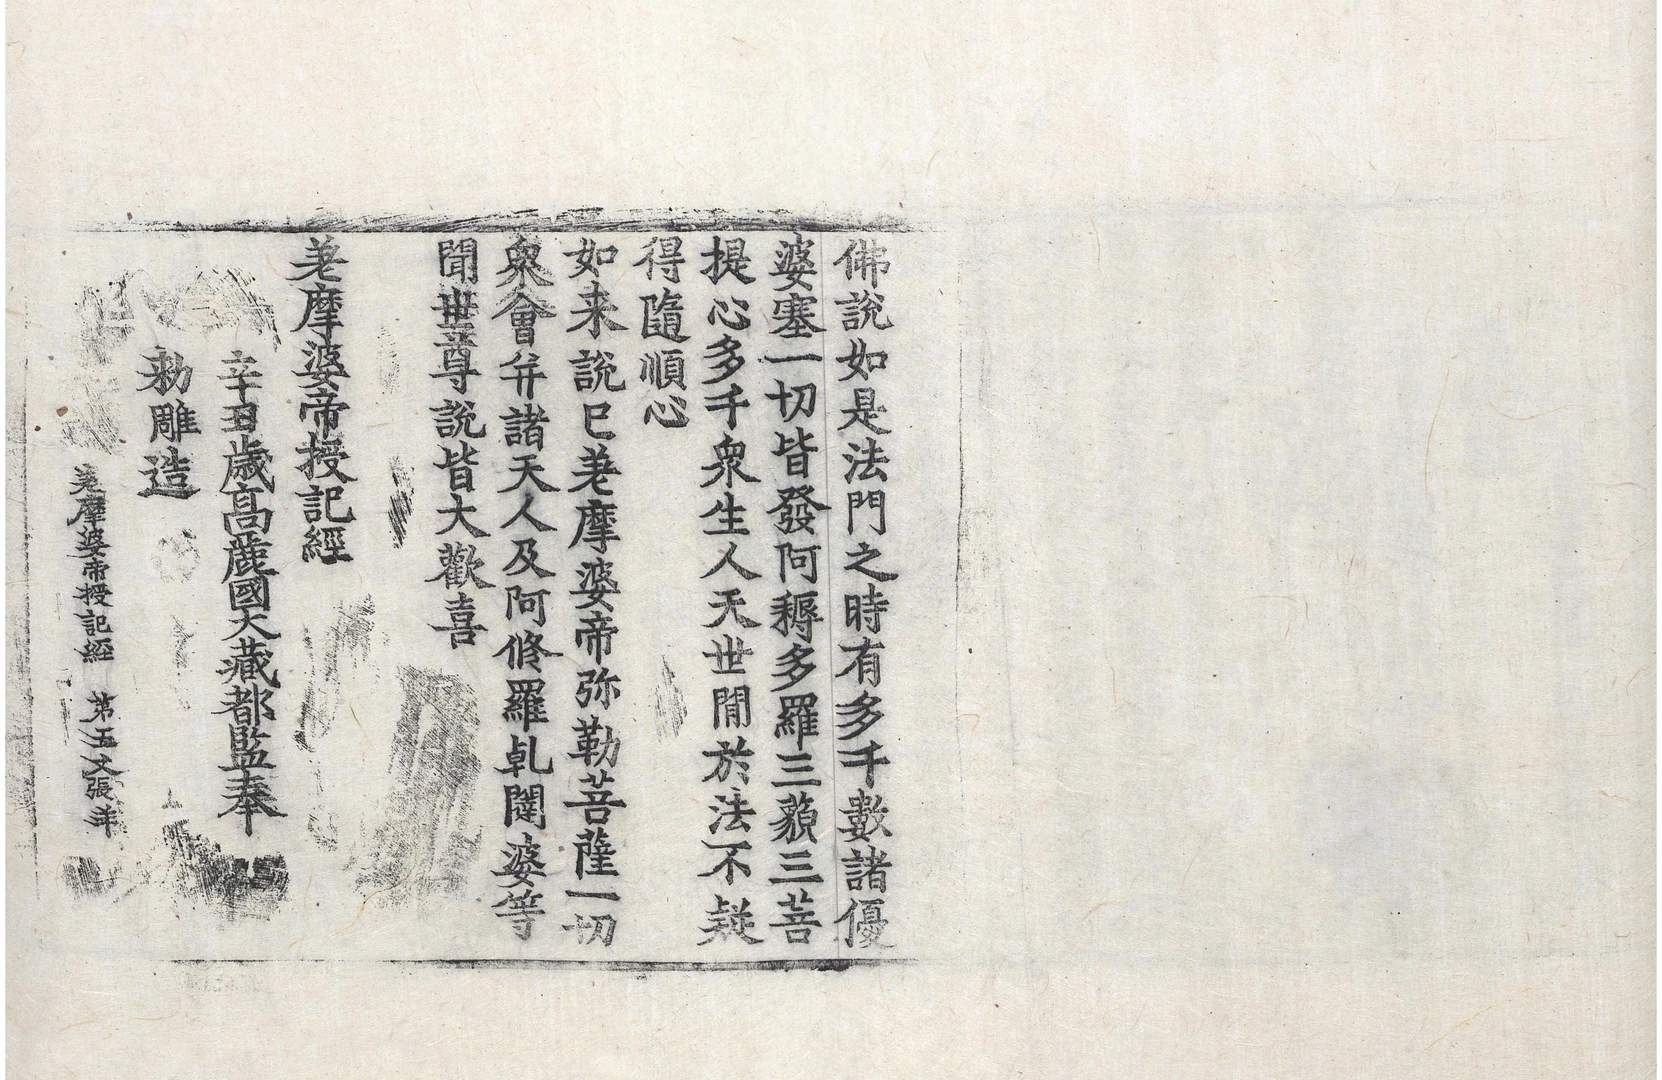 佛說如是法門之時有多千數諸優
婆塞一切皆發阿耨多羅三藐三菩
提心多千衆生人天世間於法不疑
得隨順心
如来說已差摩婆帝弥勒菩薩一切
衆會并諸天人及阿修羅乹闥婆等
聞世尊說皆大歡喜
差摩婆帝授記經
辛丑歲高麗國大藏都監奉
勑雕造
差摩婆帝授記經 第五丈張 羊